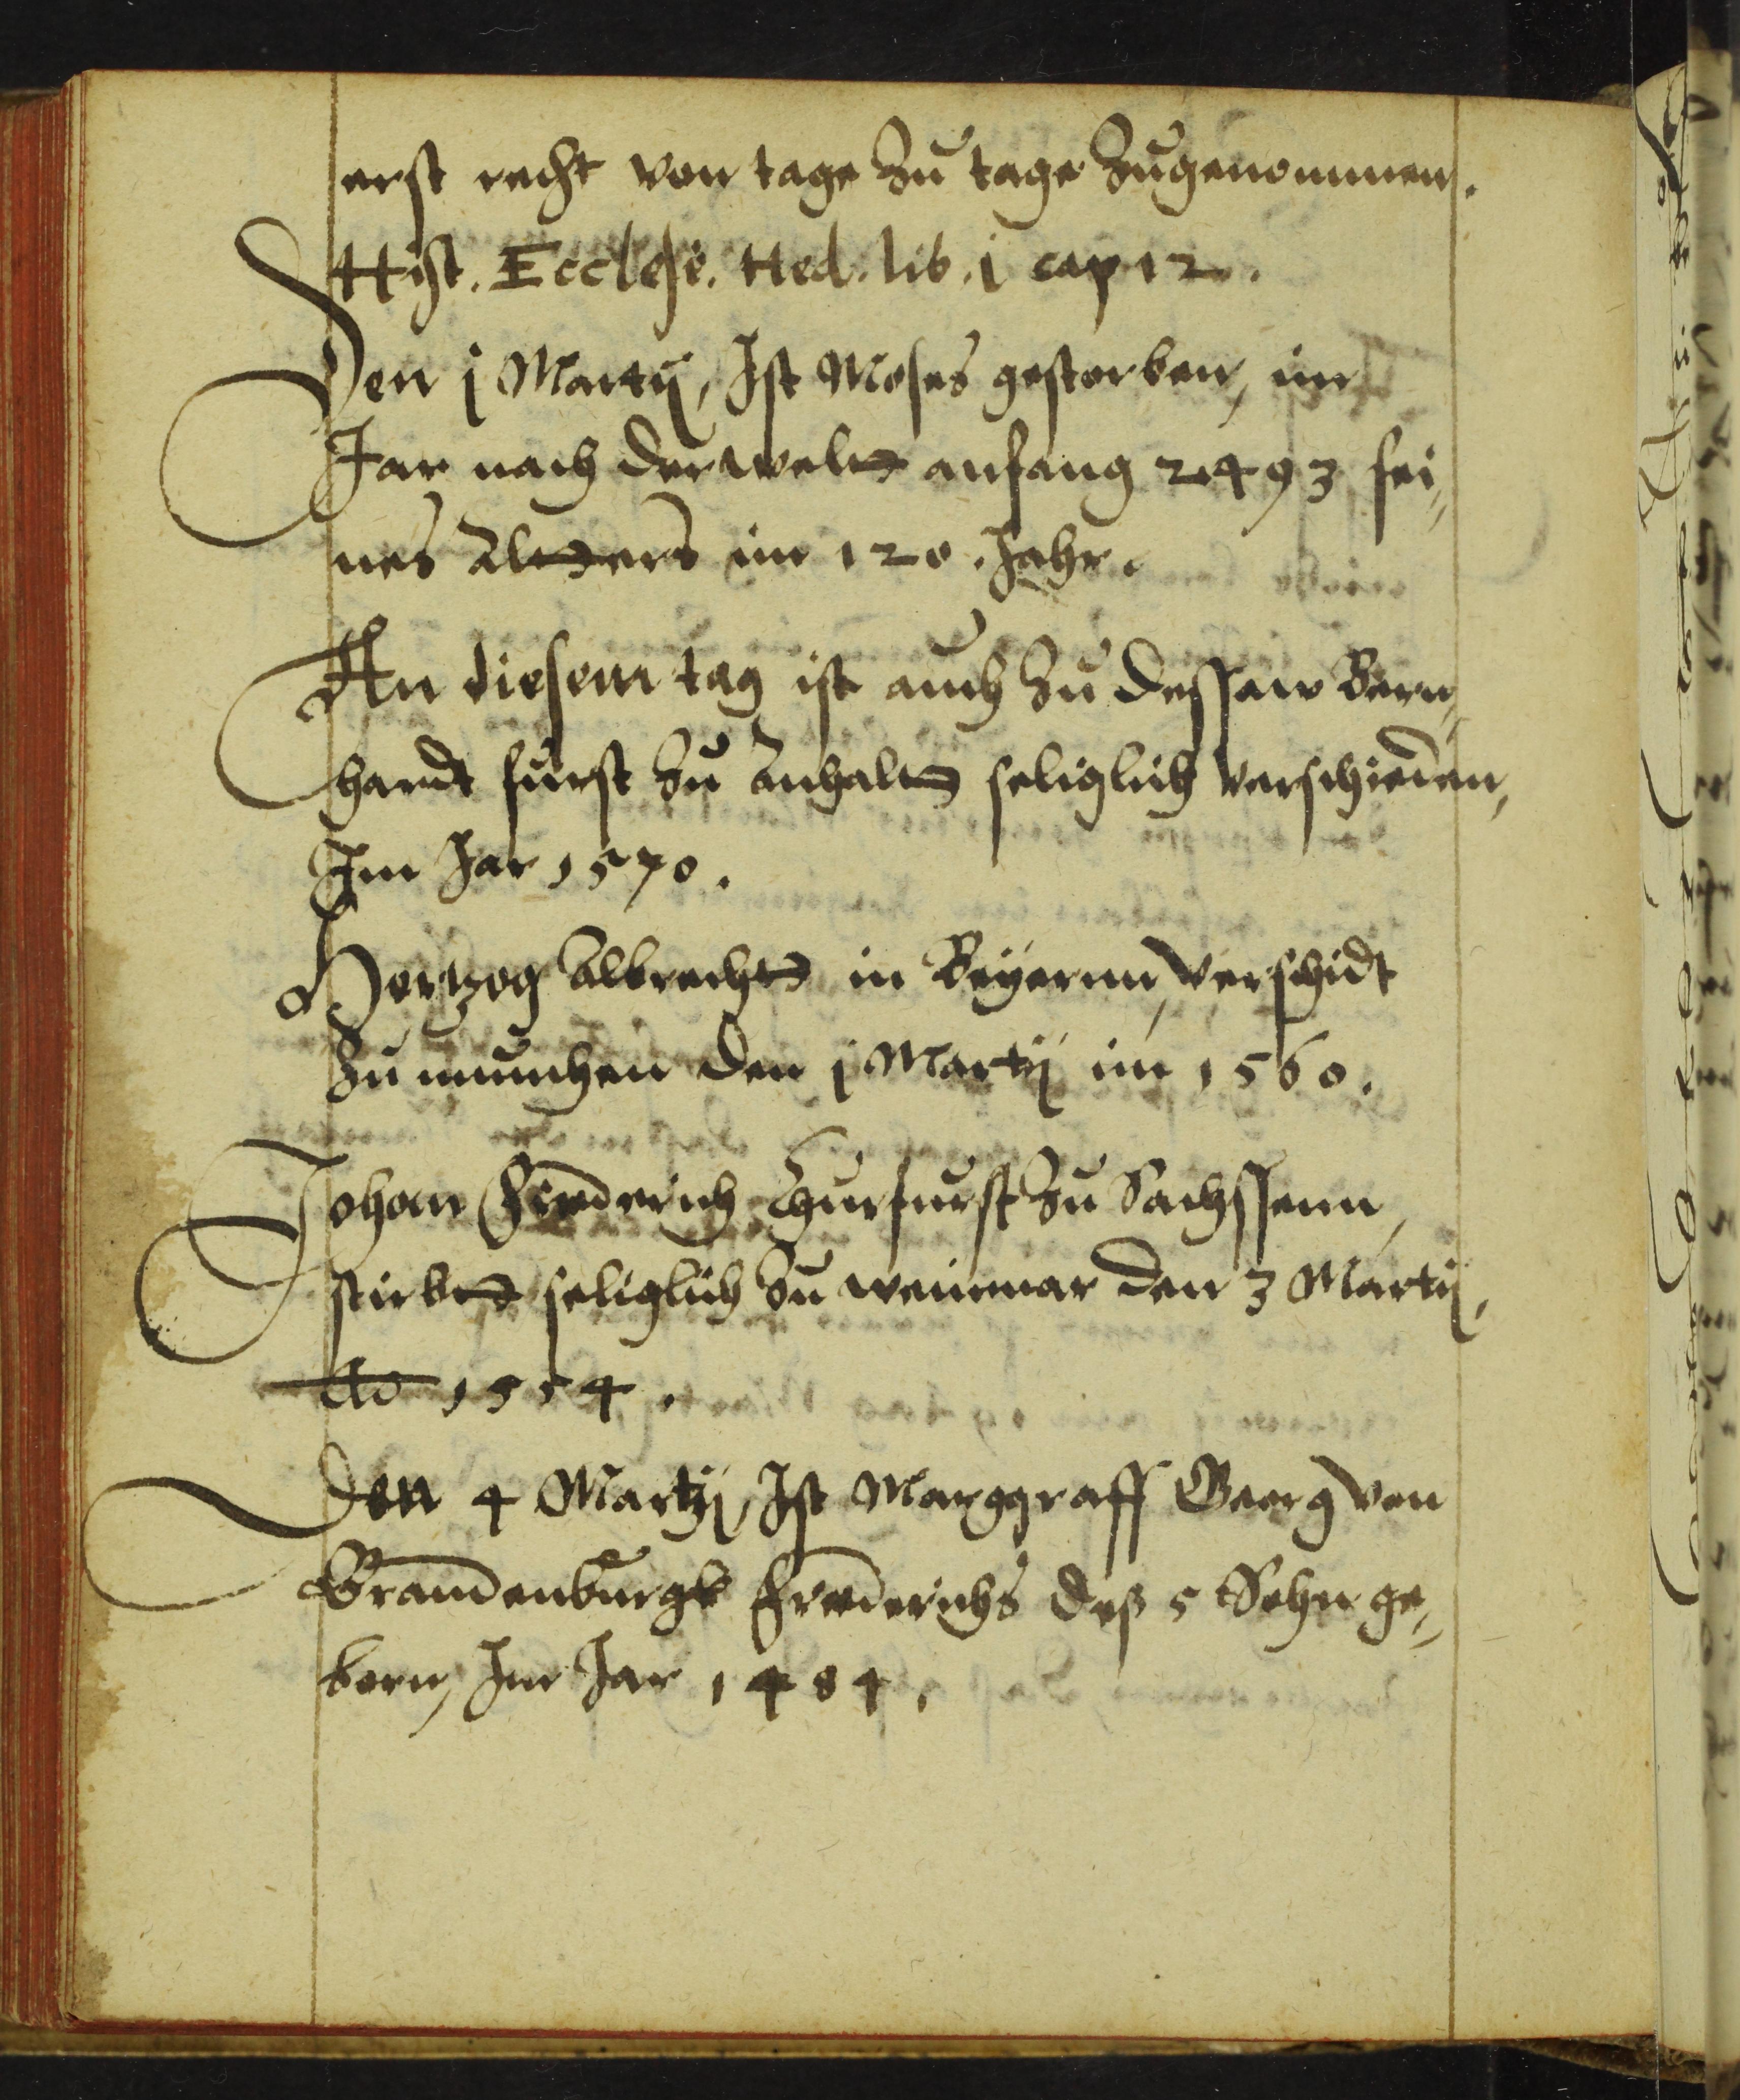 erst recht von tage zu tage zugenommen.
Hist. Ecclesi. Hed. lib. j cap 12.
Den j Martij, Ist Moses gestorben, im
Jar nach der welt anfang 2493 sei,,
nes Alters im 120. Jahr.
An diesem tag ist auch zu Dessaw Bern,,
hardt fürst zu Anhalt seliglich verschieden,
Im Jar 1570.
Hertzog Albrecht in Beyernn, verschidt
zu munchen den j Martij im 1560.
Johan Friederich Churfurst zu Sachssenn,
stirbt seliglich zu weinmar den 3 Martij,
Ao 1554.
Den 4 Martij, Ist Marggraff Georg von
Brandenburgk Friederichs deß 5 Sohn ge,,
born, Im Jar 1484.